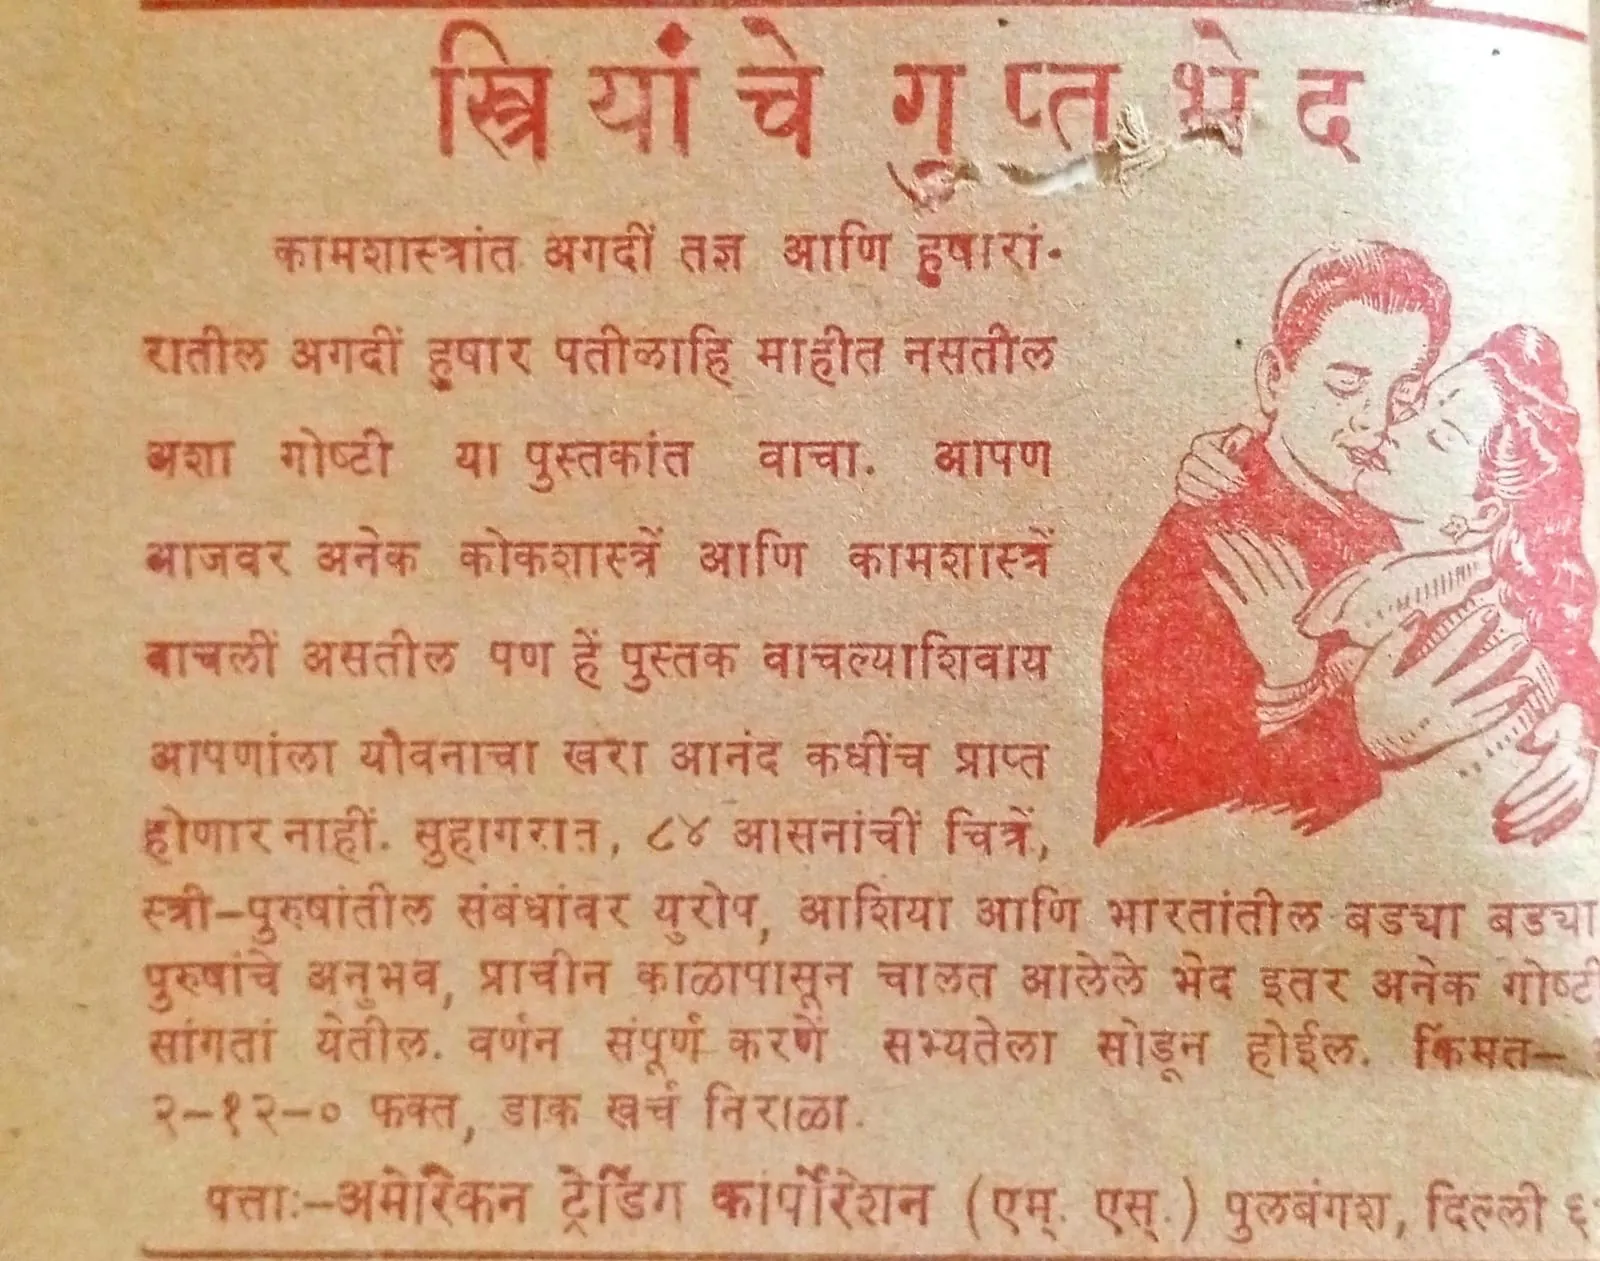 स्त्रियांचे गुप्त भेद
कामशास्त्रांत अगदीं तज्ञ आणि हुषारां-
रातील अगदीं हुषार पतीलाहि माहीत नसतील
अशा गोष्टी या पुस्तकांत वाचा. आपण
आजवर अनेक कोकशास्त्रें आणि कामशास्त्रें
वाचलीं असतील पण हें पुस्तक वाचल्याशिवाय
आपणांला यौवनाचा खरा आनंद कधींच प्राप्त
होणार नाहीं. सुहागरात, ८४ आसनांचीं चित्रें,
स्त्री-पुरुषांतील संबंधांवर युरोप, आशिया आणि भारतांतील बड्या बड्या
पुरुषांचे अनुभव, प्राचीन काळापासून चालत आलेले भेद इतर अनेक गोष्टी
सांगतां येतील. वर्णन संपूर्ण करणें सभ्यतेला सोडून होईल. किंमत-
२-१२-० फक्त, डाक खर्च निराळा.
पत्ताः-अमेरिकन ट्रेडिंग कार्पोरेशन (एम्. एस्.) पुलबंगश, दिल्ली ६